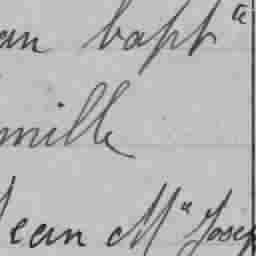 an bapt^te
mille
Jean M^ie Josep